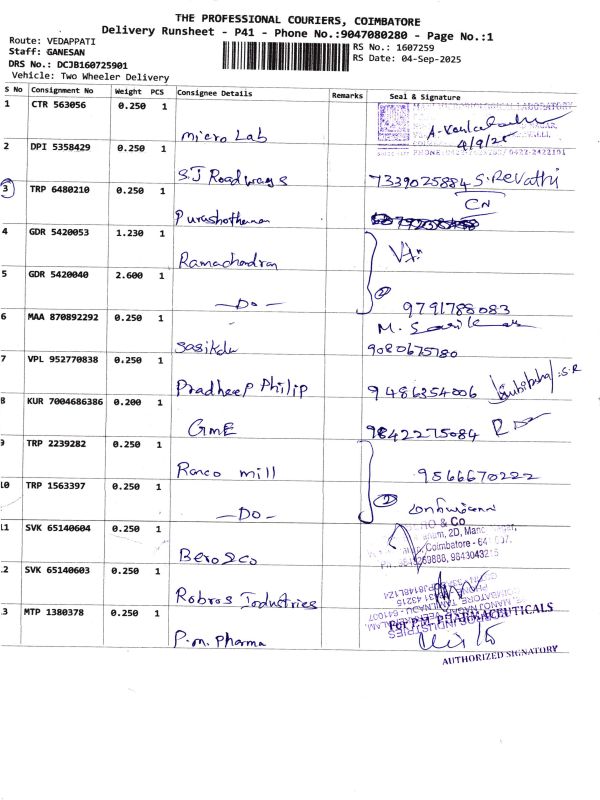 THE PROFESSIONAL COURIERS, COIMBATORE
Delivery Runsheet - P41 - Phone No.:9047080280 - Page No.:1
Route: VEDAPPATI
Staff: GANESAN
DRS No.: DCJB160725901
Vehicle: Two Wheeler Delivery
RS No.: 1607259
RS Date: 04-Sep-2025
S No Consignment No Weight PCS Consignee Details Remarks Seal & Signature
1 CTR 563056 0.250 1 micro Lab
4/9/25
2 DPI 5358429 0.250 1 S.J Roadways 7339025884 S.Revathi
3 TRP 6480210 0.250 1 Purashothaman CN
4 GDR 5420053 1.230 1 Ramachandran
5 GDR 5420040 2.600 1 —Do— 2 9791788083
6 MAA 870892292 0.250 1 Sasikala M. 9080675780
7 VPL 952770838 0.250 1 Pradheep Philip 9486354006
8 KUR 7004686386 0.200 1 GME 9842275084
9 TRP 2239282 0.250 1 Ranco mill 9566670222
10 TRP 1563397 0.250 1 —Do— 2
& Co
Coimbatore - 641 007.
11 SVK 65140604 0.250 1 Bero & co
.2 SVK 65140603 0.250 1 Robros Industries
3 MTP 1380378 0.250 1 P.m. Pharma
For P.M. PHARMACEUTICALS
AUTHORIZED SIGNATORY